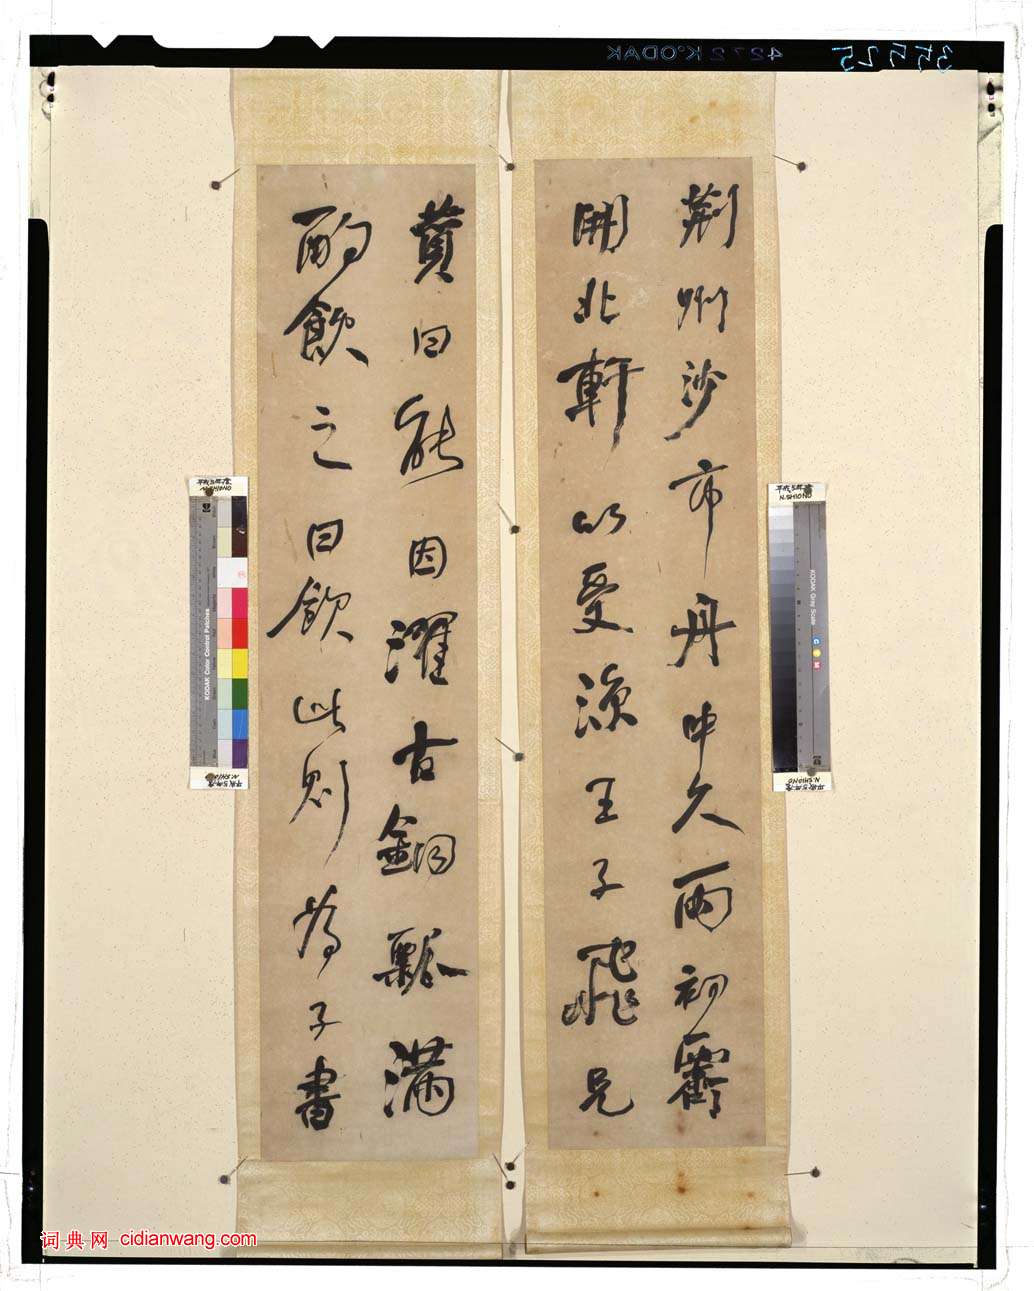 荆州沙市舟中久雨初霽
開北軒以受涼王子飛兄
賁曰能因濯古銅瓢滿
酌飲之曰飲此則為子書
35525
4272 KODAK
N.SHIONO
KODAK Color Control Patches
N.SHIONO
N.SHIONO
KODAK Gray Scale
C Y M
N.SHIONO
词典网 cidianwang.com